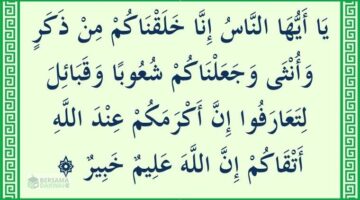 يَا أَيُّهَا النَّاسُ إِنَّا خَلَقْنَاكُمْ مِنْ ذَكَرٍ
وَأُنْثَى وَجَعَلْنَاكُمْ شُعُوبًا وَقَبَائِلَ
لِتَعَارَفُوا إِنَّ أَكْرَمَكُمْ عِنْدَ اللَّهِ
أَتْقَاكُمْ إِنَّ اللَّهَ عَلِيمٌ خَبِيرٌ ۞
BERSAMA
DAKWAH